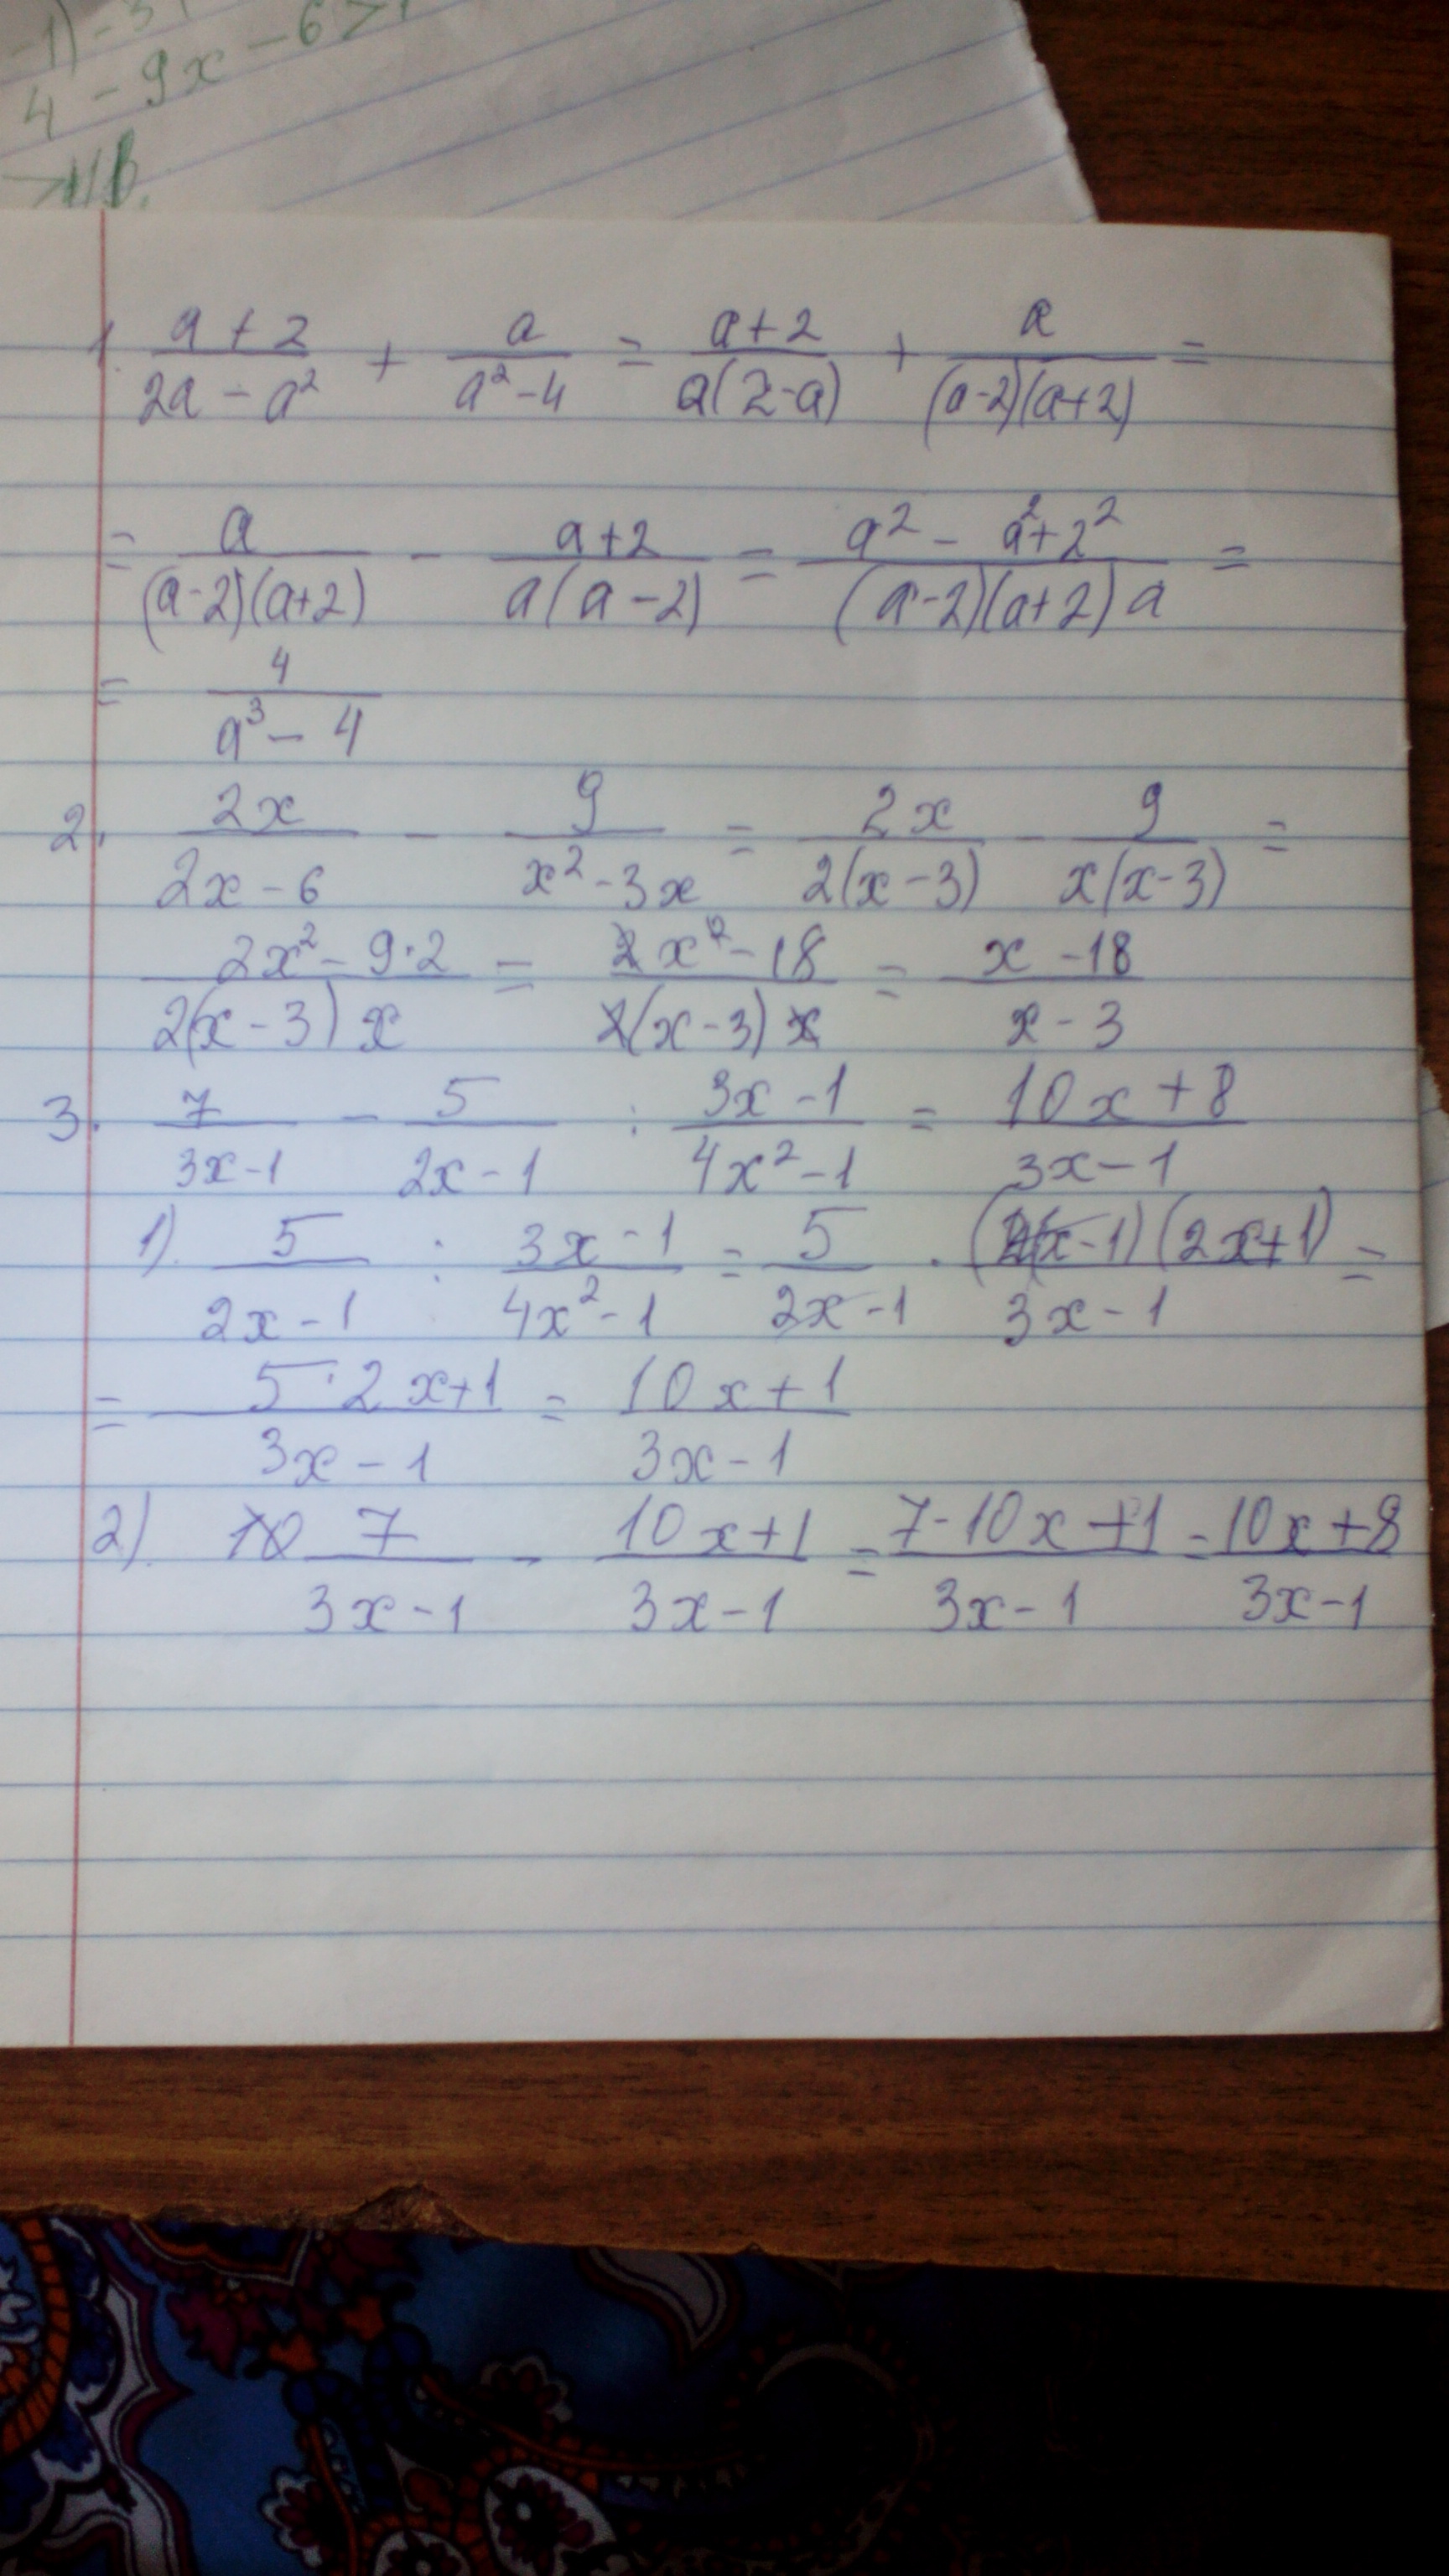 4 - 9x - 6 >
1. (a + 2)/(2a - a²) + a/(a² - 4) = (a + 2)/(a(2 - a)) + a/((a - 2)(a + 2)) =
= a/((a - 2)(a + 2)) - (a + 2)/(a(a - 2)) = (a² - a² + 2²)/((a - 2)(a + 2)a) =
= 4/(a³ - 4)
2. 2x/(2x - 6) - 9/(x² - 3x) = 2x/(2(x - 3)) - 9/(x(x - 3)) =
(2x² - 9·2)/(2(x - 3)x) = (2x² - 18)/(2(x - 3)x) = (x - 18)/(x - 3)
3. 7/(3x - 1) - 5/(2x - 1) : (3x - 1)/(4x² - 1) = (10x + 8)/(3x - 1)
1). 5/(2x - 1) : (3x - 1)/(4x² - 1) = 5/(2x - 1) · ((2x - 1)(2x + 1))/(3x - 1) =
= (5·2x + 1)/(3x - 1) = (10x + 1)/(3x - 1)
2). 7/(3x - 1) - (10x + 1)/(3x - 1) = (7 - 10x + 1)/(3x - 1) = (10x + 8)/(3x - 1)